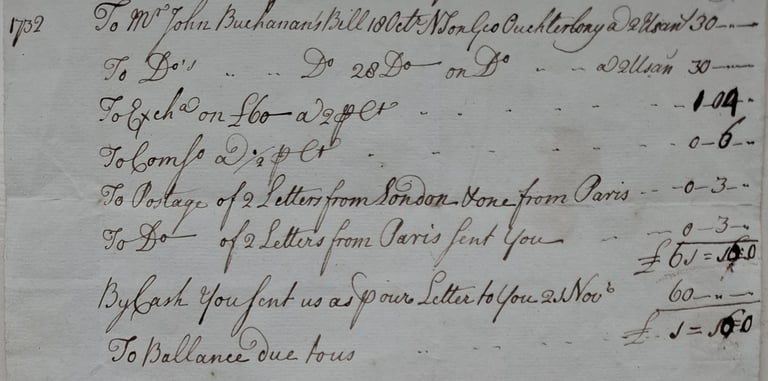 1732 To Mr John Buchanan's Bill 18 Octr NS on Geo Ouchterlony a 2 Usan 30 - "
To Do's " " Do 28 Do on Do " " a 2 Usan 30 -
To Excha on £60 a 2 p Ct 1 04 "
To Comso a ½ p Ct 0-6 "
To Postage of 2 Letters from London & one from Paris 0-3-"
To Do of 2 Letters from Paris sent You 0-3-"
£61=16=0
By Cash You sent us as p our Letter to You 21 Novr 60-"-
£ 1=16=0
To Ballance due to us